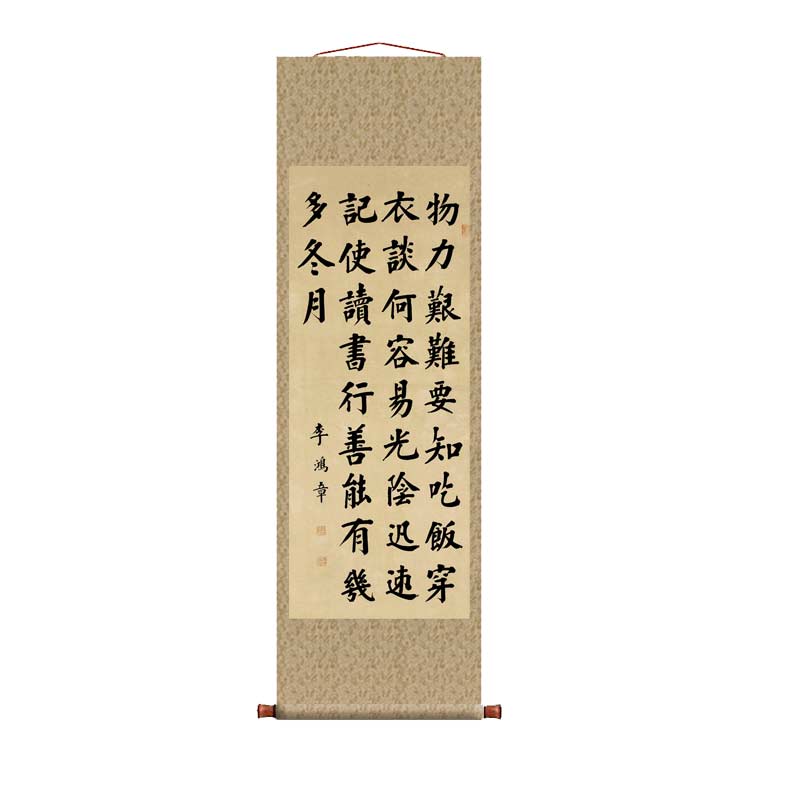 物力艱難要知吃飯穿
衣談何容易光陰迅速
記使讀書行善能有幾
多冬月
李鴻章